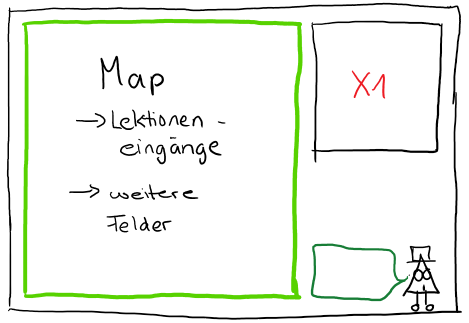 Map
→ Lektionen -
eingänge
→ weitere
Felder
X1